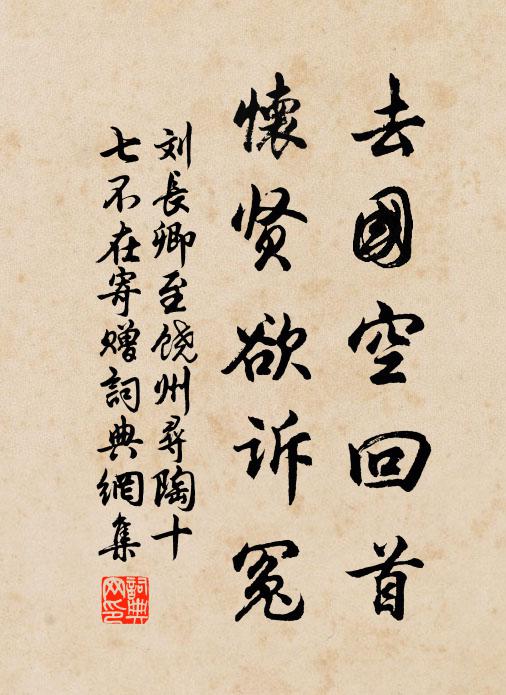 去國空回首
懷贤欲诉冤
刘長卿至饶州尋陶十
七不在寄赠詞典網集
詞典
网印